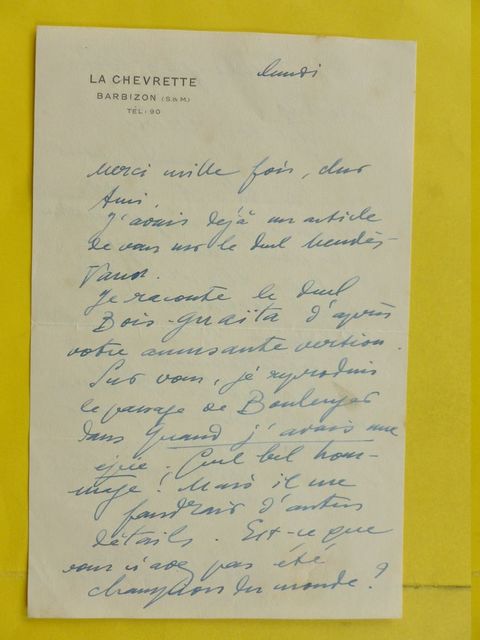 LA CHEVRETTE
BARBIZON (S.&M.)
TÉL : 90
lundi
Merci mille fois, cher
Ami.
J'avais déjà un article
de vous sur le duel Mendès-
Vanor.
Je raconte le duel
Bois-Guaita d'après
votre amusante version.
Sur vous, je reproduis
le passage de Boulenger
dans Quand j'avais une
épée. Quel bel hom-
mage ! Mais il me
faudrait d'autres
détails. Est-ce que
vous n'avez pas été
champion du monde ?